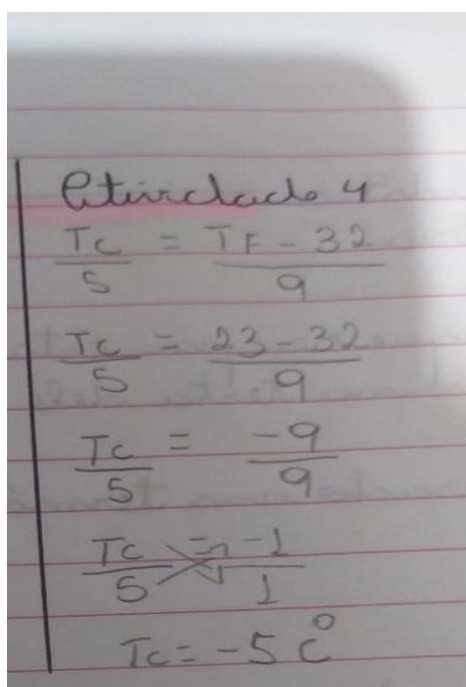 Atividade 4
Tc/5 = TF - 32/9
Tc/5 = 23 - 32/9
Tc/5 = -9/9
Tc/5 = -1/1
Tc = -5 C°